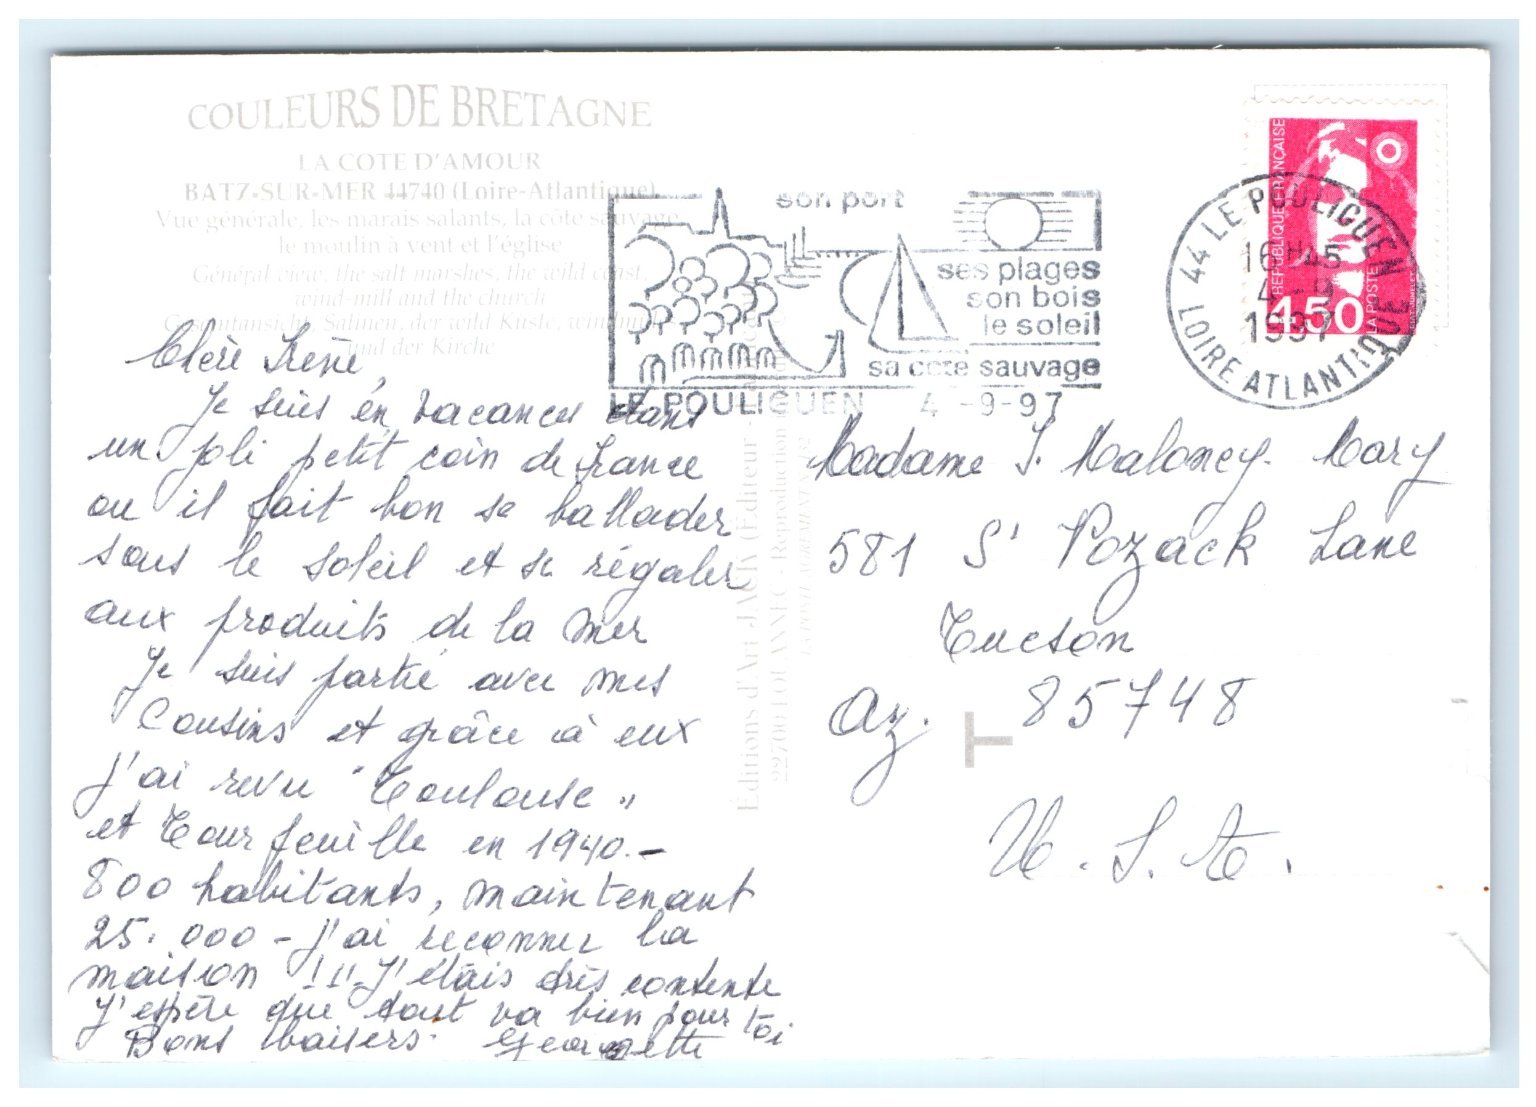 COULEURS DE BRETAGNE
LA COTE D'AMOUR
BATZ-SUR-MER 44740 (Loire-Atlantique)
Vue générale, les marais salants, la côte sauvage
le moulin à vent et l'église
Général view, the salt marshes, the wild coast,
wind-mill and the church
Gesamtansicht, Salinen, der wild Kuste,
und der Kirche
Chère Irène,
Je suis en vacances dans
un joli petit coin de France
ou il fait bon se ballader
sous le soleil et se régaler
aux produits de la mer
Je suis partie avec mes
Cousins et grâce à eux
j'ai revu "Toulouse"
et Tourfeuille en 1940.-
800 habitants, maintenant
25.000 - j'ai reconnu la
maison !!! J'étais très contente
J'espère que tout va bien pour toi
Bons baisers. Georgette
Editions d'Art JACK (Editeur -
22700 LOUANNEC - Reproduction
son port
ses plages
son bois
le soleil
sa côte sauvage
LE POULIGUEN 4 -9-97
REPUBLIQUE FRANÇAISE
4,50
LA POSTE
44 LE POULIGUEN
16H45
4 -9
1997
LOIRE ATLANTIQUE
Madame I. Maloney. Mary
581 S' Pozack Lane
Tucson
Az. 85748
U.S.A.